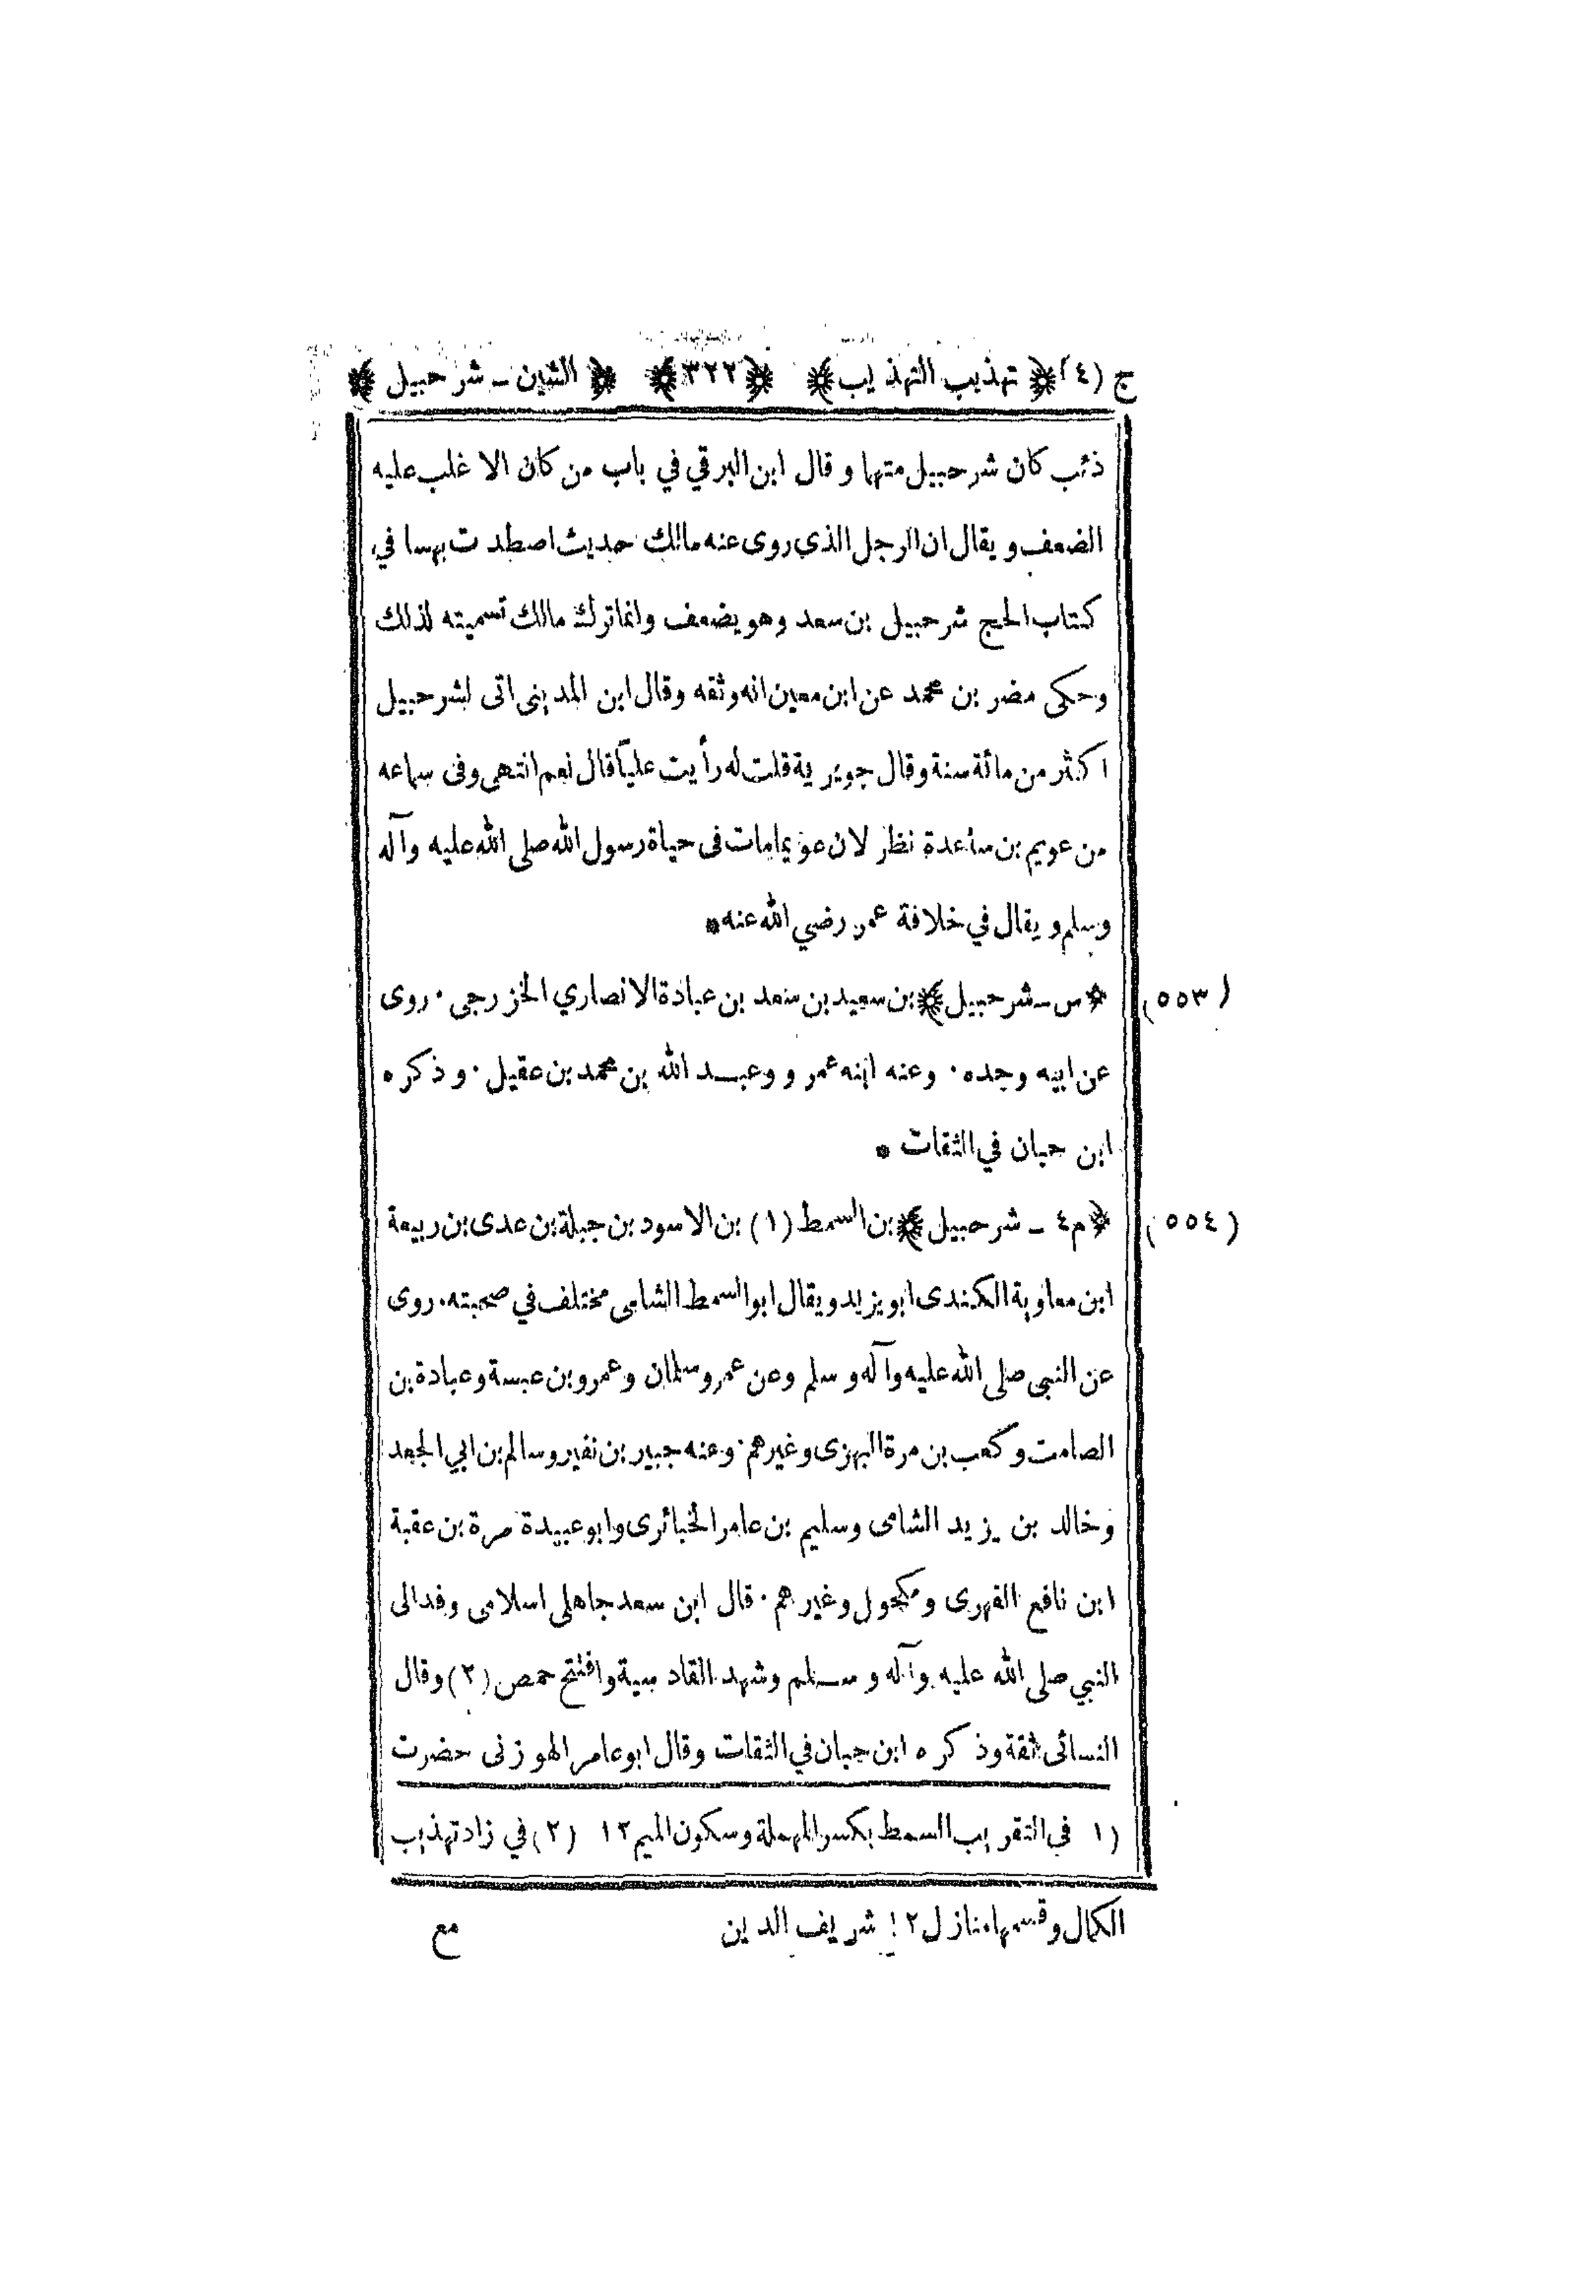 ج (٤) ﴿ تهذيب التهذيب ﴾ ﴿ ٣٢٢ ﴾ ﴿ الشين - شرحبيل ﴾
ذئب كان شرحبيل متهما وقال ابن البرقي في باب من كان الاغلب عليه
الضعف ويقال ان الرجل الذي روى عنه مالك حديث اصطدت بهسا في
كتاب الحج شرحبيل بن سعد وهو يضعف وانما ترك مالك تسميته لذلك
وحكى مضر بن محمد عن ابن معين انه وثقه وقال ابن المديني اتى لشرحبيل
اكثر من مائة سنة وقال جويرية قلت له رأيت عليًا قال نعم انتهى وفى سماعه
من عويم بن ساعدة نظر لان عويما مات فى حياة رسول الله صلى الله عليه وآله
وسلم ويقال في خلافة عمر رضي الله عنه*
(٥٥٣) ﴿ س - شرحبيل ﴾ بن سعيد بن سعد بن عبادة الانصاري الخزرجى . روى
عن ابيه وجده . وعنه ابنه عمرو وعبد الله بن محمد بن عقيل . وذكره
ابن حبان في الثقات *
(٥٥٤) ﴿ م٤ - شرحبيل ﴾ بن السمط (١) بن الاسود بن جبلة بن عدى بن ربيعة
ابن معاوية الكندى ابو يزيد ويقال ابو السمط الشامى مختلف في صحبته . روى
عن النبي صلى الله عليه وآله وسلم وعن عمر وسلمان وعمرو بن عبسة وعبادة بن
الصامت وكعب بن مرة البهزى وغيرهم . وعنه جبير بن نفير وسالم بن ابي الجعد
وخالد بن يزيد الشامى وسليم بن عامر الخبائرى وابو عبيدة مرة بن عقبة
ابن نافع الفهرى ومكحول وغيرهم . قال ابن سعد جاهلى اسلامى وفد الى
النبي صلى الله عليه وآله وسلم وشهد القادسية وافتتح حمص (٢) وقال
النسائى ثقة وذكره ابن حبان في الثقات وقال ابو عامر الهوزنى حضرت
(١ فى التقريب السمط بكسر المهملة وسكون الميم ١٢ (٢) في زاد تهذيب
الكمال وقسمها منازل ١٢ شريف الدين
مع